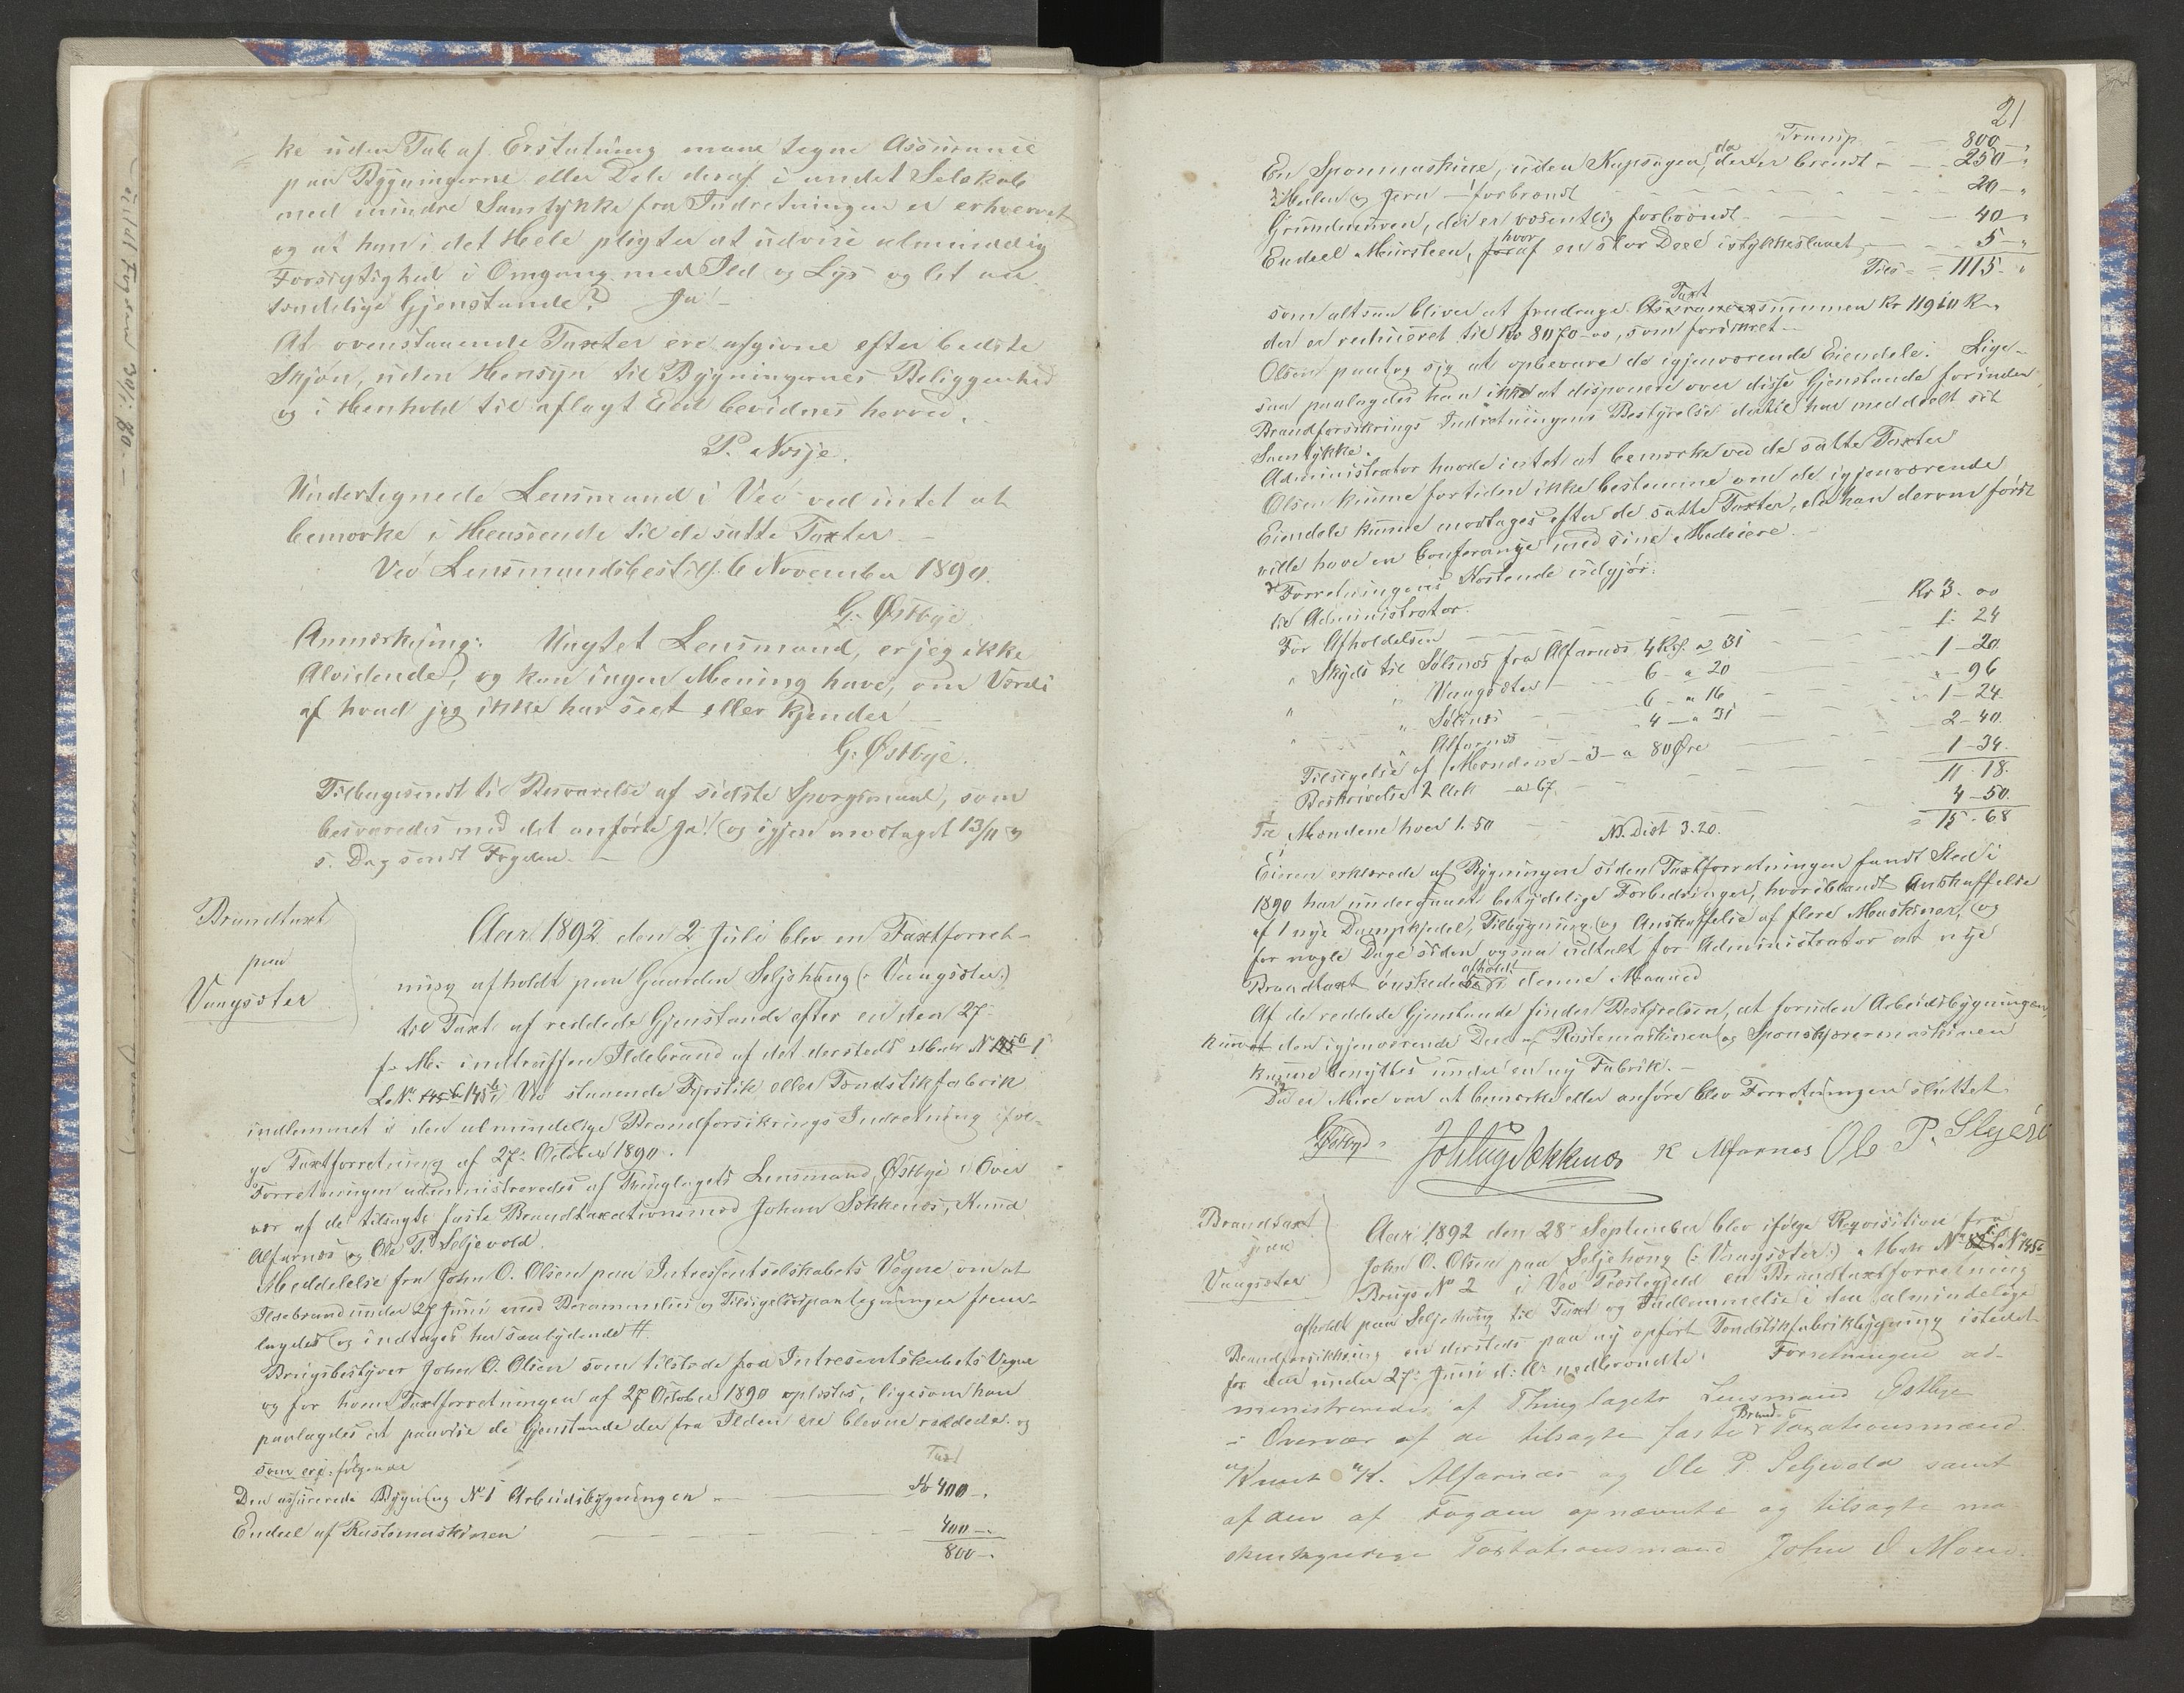 ke uden Tab af Erstatning maae tegne Assurance
paa Bygningerne eller Dele deraf i andet Selskab
med mindre Samtykke fra Indretningen er erhvervet
og at han i det Hele pligter at udvise almindelig
Forsigtighed i Omgang med Ild og Lys og let an
tændelige Gjenstande? Ja!
At ovenstaaende Taxter ere afgivne efter bedste
Skjøn, uden Hensyn til Bygningernes Beliggenhed
og i Henhold til aflagt Eed bevidnes herved.
P. Nosje.
Undertegnede Lensmand i Veø ved intet at
bemærke i Henseende til de satte Taxter.
Veø Lensmandsbestil. 6 November 1890.
G. Østbye.
Anmærkning: Uagtet Lensmand, er jeg ikke
Alvidende, og kan ingen Mening have, om Værdi
af hvad jeg ikke har seet eller kjender
G. Østbye.
Tilbagesendt til Besvarelse af sidste Spørgsmaal, som
besvaredes med det anførte Ja! og igjen modtaget 13/11 og
s. Dag sendt Fogden.
Brandtaxt
paa
Vangsæter
Aar 1892 den 2 Juli blev en Taxtforret-
ning afholdt paa Gaarden Seljehaug (: Vangsæter :)
til Taxt af reddede Gjenstande efter en den 27
f. M. indtruffen Ildebrand af det dersteds Matr N 1
L. No. 145 Veø staaende Fyrstik eller Tændstikfabrik
indlemmet i den almindelige Brandforsikrings Indretning iføl-
ge Taxtforretning af 27. October 1890.
Forretningen administreredes af Thinglagets Lensmand Østbye i Over
vær af de tilsagte faste Brandtaxationsmænd Johan Sækkenæs, Knud
Alfarnæs og Ole P. Seljevold.
Meddelelse fra John O. Olsen paa Intressentselskabets Vegne om at
Ildebrand under 27 Juni med Berammelses og Tilsigelsespaategninger frem-
lagdes og indtages her saalydende #.
Brugsbestyrer John O. Olsen som tilstede paa Intresentskabets Vegne
og for hvem Taxtforretningen af 27 October 1890 oplæstes, ligesom han
paalagdes at paavise de Gjenstande der fra Ilden ere blevne reddede og
som ere følgende
Taxt
Den assurerede Bygning No 1 Arbeidsbygningen - Kr 400 -.
Endeel af Rustemaskinen - 400 -.
800 -.
21
Transp. 800 - "
En Sponmaskine, uden Kapsagen, da der er brændt - 250 - "
Hulen og Jern - forbrændt 20 - "
Grundmuren, der er væsentlig forbrændt - 40 - "
Endeel Mursteen, hvoraf en stor Deel istykkeslaaet - 5 - "
Tils = 1115. "
som altsaa bliver at fradrage Taxtsummen Kr
der er reduceret til Kr 8070 - 00, som forsikret -
Olsen paatog sig at opbevare de igjenværende Eiendele. Lige-
saa paalagdes han ikke at disponere over disse Gjenstande forinden
Brandforsikrings Indretningens Bestyrelse dertil har meddeelt sit
Samtykke.
Administrator havde intet at bemærke ved de satte Taxter
Olsen kunne for tiden ikke bestemme om de igjenværende
Eiendele kunne modtages efter de satte Taxter, da han derom først
vilde have en Conferanse med sine Medeiere. -
Forretningens Kostende udgjør:
til Administrator. Kr 3. 00
For Afholdelsen 1. 24
" Skyds til Sølsnæs fra Alfarnæs 4 Kil. a 31 1 - 20
" " Vangsæter 6 - a 20 " - 96
" " Sølsnæs 6 - a 16 1 - 24
" " Alfarnæs 4 - a 31 2 - 40.
Tilsigelse af Mændene - 3 - a 80 Øre 1 - 34.
Beskrivelse 2 a 67. 11. 18.
Tre Mændene hver 1. 50 4 - 50.
NB. Diæt 3.20. = 15. 68
Eieren erklærede at Bygningen siden Taxtforretningen fandt Sted i
1890 har undergaaet betydelige Forbedringer, hvoriblandt Anskaffelse
af 1 nye Dampkjedel, Tilbygning og Anskaffelse af flere Maskiner, og
for nogle Dage siden ogsaa udtalt for Administrator at nye
Brandtaxt ønskedes afholdt i denne Maaned
Af de reddede Gjenstande finder Bestyrelsen, at foruden Arbeidsbygningen
kun den igjenværende Deel af Rustemaskinen og Sponskjæremaskinen
kunne benyttes under en ny Fabrik. -
Da ei Mere var at bemærke eller anføre blev Forretningen sluttet
Østbye Joh Sækkenæs K Alfarnes Ole P. Slejevo
Brandtaxt
paa
Vangsæter
Aar 1892 den 28 September blev ifølge Reqvisition fra
John O. Olsen paa Seljehaug (: Vangsæter :) Matr No L. No 145
Brugs No 2 i Veø Præstegjeld en Brandtaxtforretning
afholdt paa Seljehaug til Taxt og Indlemmelse i den almindelige
Brandforsikkring en dersteds paa ny opført Tændstikfabrikbygning istedet
for den under 27. Juni d. A. nedbrændte. Forretningen ad-
ministreredes af Thinglagets Lensmand Østbye
i Overvær af de tilsagte faste Brand-Taxationsmænd
Knut K. Alfarnæs og Ole P. Seljevold samt
af den af Fogden opnævnte og tilsagte ma
skinkyndige Taxtationsmand John O Moen.